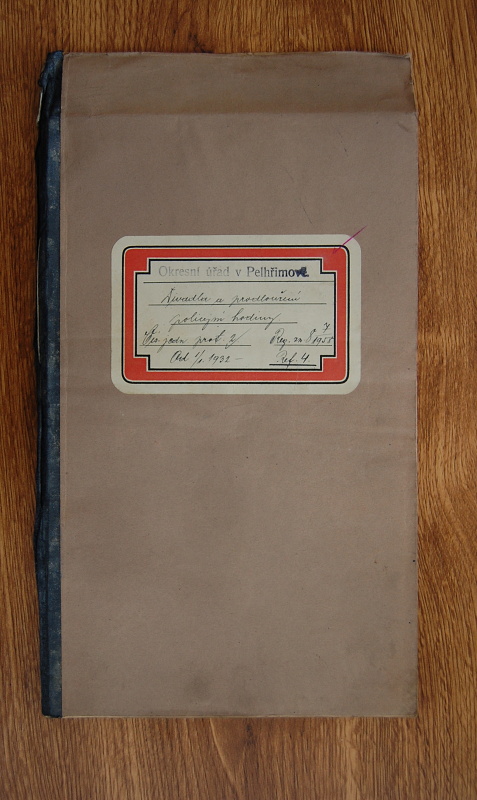 Okresní úřad v Pelhřimově.
Divadla a prodloužení
policejní hodiny
prot. 2/ Reg. 8/7
Od 1/1. 1932 – Ref. 4.